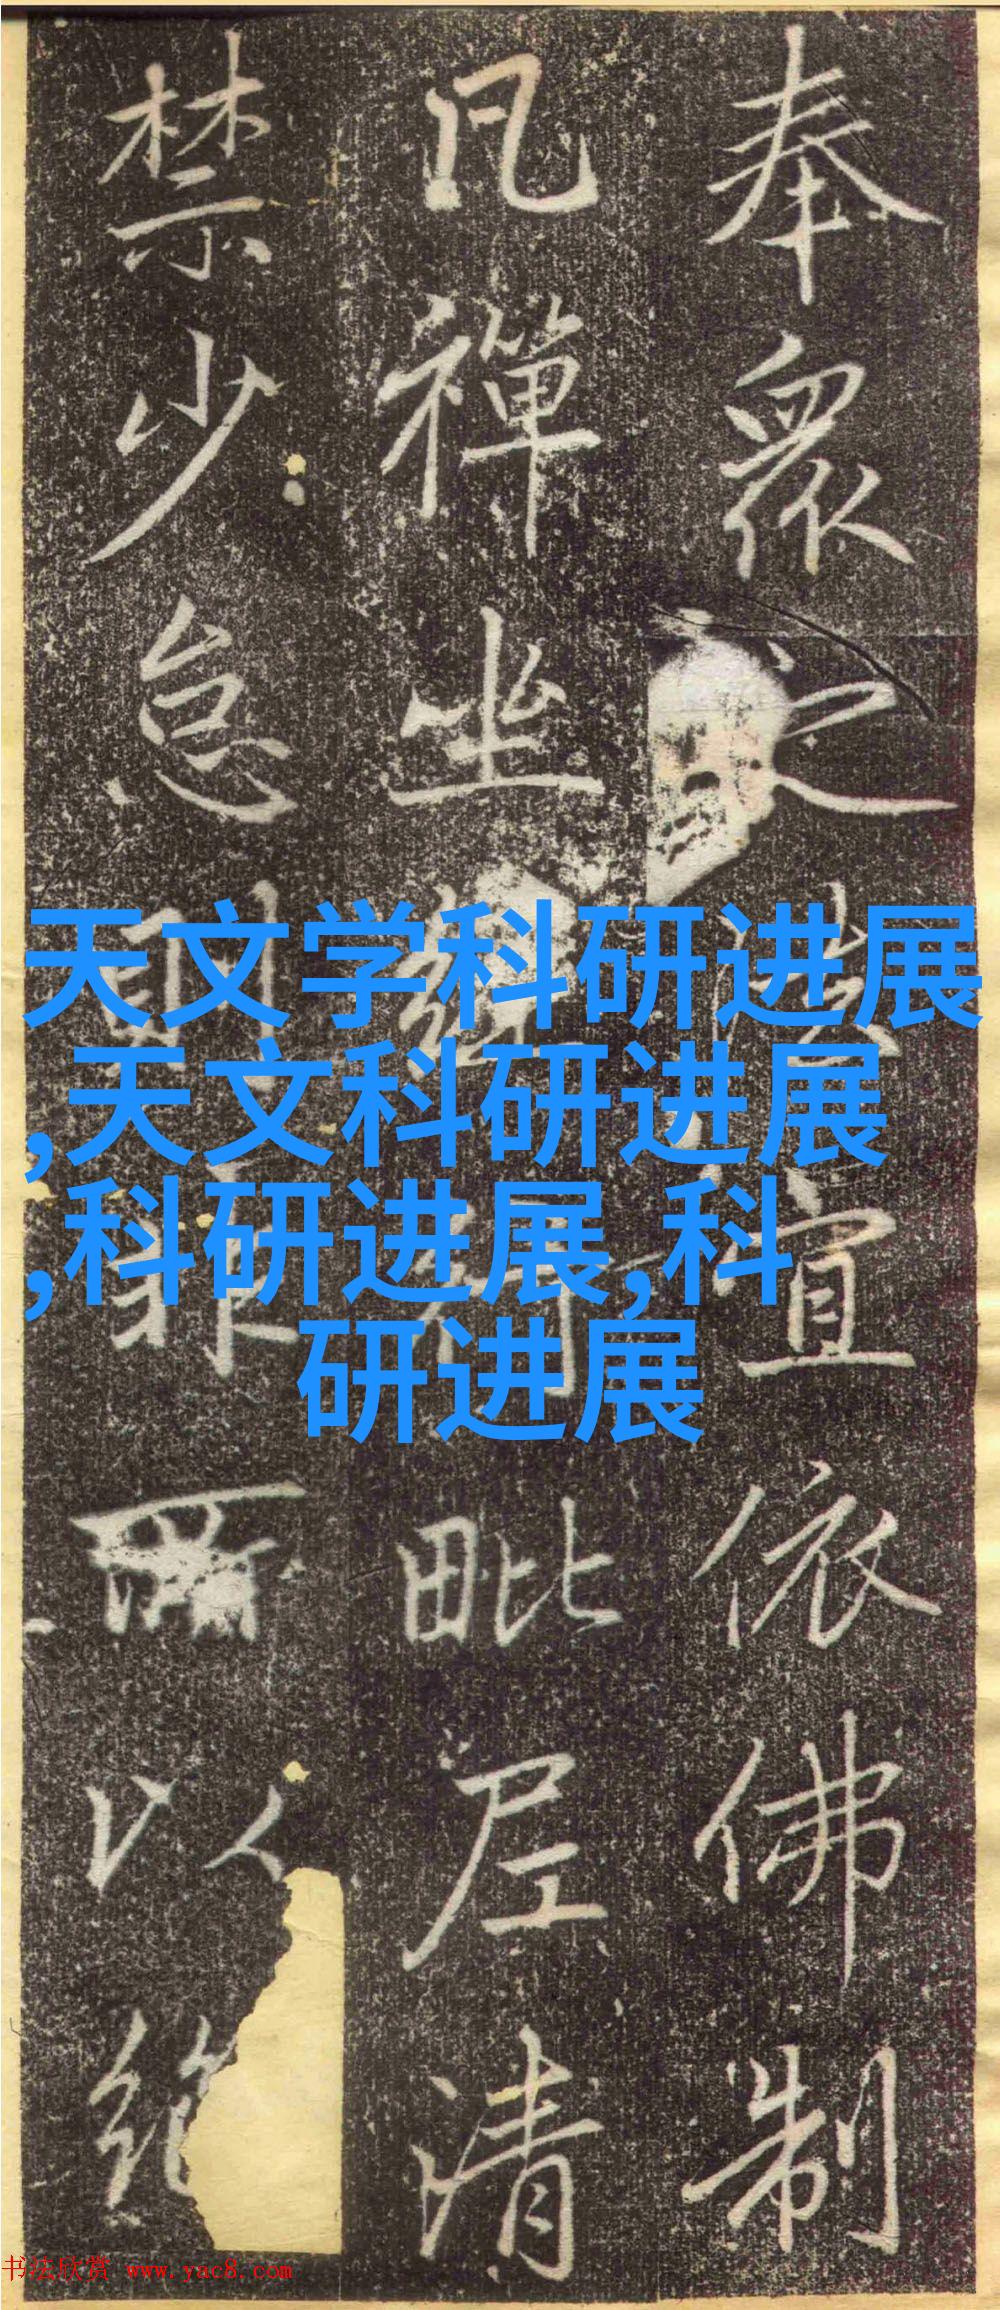 奉眾宜依佛制
凡禪坐行毗尼清
禁少怠則非所以
天文学科研进展
,天文科研进展
,科研进展,科
研进展
书法欣赏 www.yac8.com